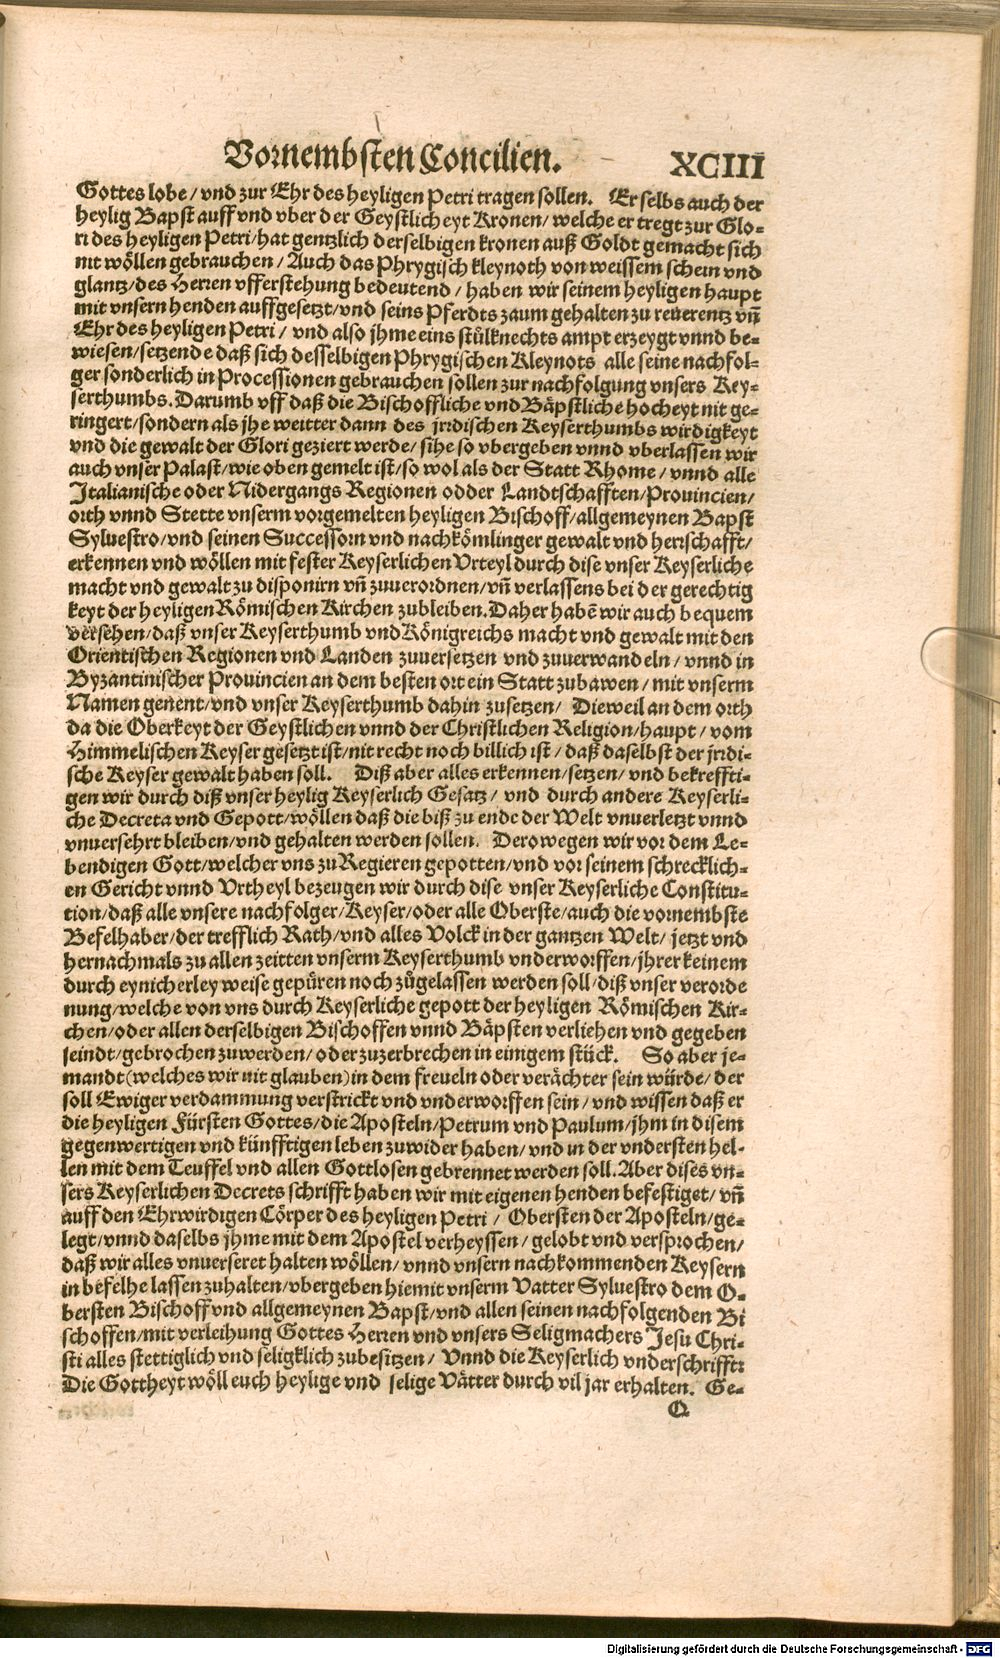 Vornembsten Concilien. XCIII
Gottes lobe / vnd zur Ehr des heyligen Petri tragen sollen. Er selbs auch der
heylig Bapst auff vnd vber der Geystlicheyt Kronen / welche er tregt zur Glo⸗
ri des heyligen Petri / hat gentzlich derselbigen kronen auß Goldt gemacht sich
nit wöllen gebrauchen / Auch das Phrygisch kleynoth von weissem schein vnd
glantz / des Herren vfferstehung bedeutend / haben wir seinem heyligen haupt
mit vnsern henden auffgesetzt / vnd seins Pferdts zaum gehalten zu reuerentz vñ
Ehr des heyligen Petri / vnd also jhme eins stülknechts ampt erzeygt vnnd be⸗
wiesen / setzende daß sich desselbigen Phrygischen Kleynots alle seine nachfol⸗
ger sonderlich in Processionen gebrauchen sollen zur nachfolgung vnsers Key⸗
serthumbs. Darumb vff daß die Bischoffliche vnd Bäpstliche hocheyt nit ge⸗
ringert / sondern als jhe weitter dann des jrdischen Keyserthumbs wirdigkeyt
vnd die gewalt der Glori geziert werde / sihe so vbergeben vnnd vberlassen wir
auch vnser Palast / wie oben gemelt ist / so wol als der Statt Rhome / vnnd alle
Italianische oder Nidergangs Regionen odder Landtschafften / Prouincien /
orth vnnd Stette vnserm vorgemelten heyligen Bischoff / allgemeynen Bapst
Syluestro / vnd seinen Successorn vnd nachkömlinger gewalt vnd herrschafft /
erkennen vnd wöllen mit fester Keyserlichen Vrteyl durch dise vnser Keyserliche
macht vnd gewalt zu disponirn vñ zuuerordnen / vñ verlassens bei der gerechtig
keyt der heyligen Römischen Kirchen zubleiben. Daher habē wir auch bequem
versehen / daß vnser Keyserthumb vnd Königreichs macht vnd gewalt mit den
Orientischen Regionen vnd Landen zuuersetzen vnd zuuerwandeln / vnnd in
Byzantinischer Prouincien an dem besten ort ein Statt zubawen / mit vnserm
Namen genent / vnd vnser Keyserthumb dahin zusetzen / Dieweil an dem orth
da die Oberkeyt der Geystlichen vnnd der Christlichen Religion / haupt / vom
Himmelischen Keyser gesetzt ist / nit recht noch billich ist / daß daselbst der jrdi⸗
sche Keyser gewalt haben soll. Diß aber alles erkennen / setzen / vnd bekreffti⸗
gen wir durch diß vnser heylig Keyserlich Gesatz / vnd durch andere Keyserli⸗
che Decreta vnd Gepott / wöllen daß die biß zu ende der Welt vnuerletzt vnnd
vnuersehrt bleiben / vnd gehalten werden sollen. Derowegen wir vor dem Le⸗
bendigen Gott / welcher vns zu Regieren gepotten / vnd vor seinem schrecklich⸗
en Gericht vnnd Vrtheyl bezeugen wir durch dise vnser Keyserliche Constitu⸗
tion / daß alle vnsere nachfolger / Keyser / oder alle Oberste / auch die vornembste
Befelhaber / der trefflich Rath / vnd alles Volck in der gantzen Welt / jetzt vnd
hernachmals zu allen zeitten vnserm Keyserthumb vnderworffen / jhrer keinem
durch eynicherley weise gepüren noch zůgelassen werden soll / diß vnser verorde
nung / welche von vns durch Keyserliche gepott der heyligen Römischen Kir⸗
chen / oder allen derselbigen Bischoffen vnnd Bäpsten verliehen vnd gegeben
seindt / gebrochen zuwerden / oder zuzerbrechen in einigem stück. So aber je⸗
mandt (welches wir nit glauben) in dem freueln oder verächter sein würde / der
soll Ewiger verdammung verstrickt vnd vnderworffen sein / vnd wissen daß er
die heyligen Fürsten Gottes / die Aposteln / Petrum vnd Paulum / jhm in disem
gegenwertigen vnd künfftigen leben zuwider haben / vnd in der vndersten hel⸗
len mit dem Teuffel vnd allen Gottlosen gebrennet werden soll. Aber dises vn⸗
sers Keyserlichen Decrets schrifft haben wir mit eigenen henden befestiget / vñ
auff den Ehrwirdigen Cörper des heyligen Petri / Obersten der Aposteln / ge⸗
legt / vnnd daselbs jhme mit dem Apostel verheyssen / gelobt vnd versprochen /
daß wir alles vnuerseret halten wöllen / vnnd vnsern nachkommenden Keysern
in befelhe lassen zuhalten / vbergeben hiemit vnserm Vatter Syluestro dem O⸗
bersten Bischoff vnd allgemeynen Bapst / vnd allen seinen nachfolgenden Bi
schoffen / mit verleihung Gottes Herren vnd vnsers Seligmachers Jesu Chri⸗
sti alles stettiglich vnd seligklich zubesitzen / Vnnd die Keyserlich vnderschrifft:
Die Gottheyt wöll euch heylige vnd selige Vätter durch vil jar erhalten. Ge⸗
Q
Digitalisierung gefördert durch die Deutsche Forschungsgemeinschaft - DFG